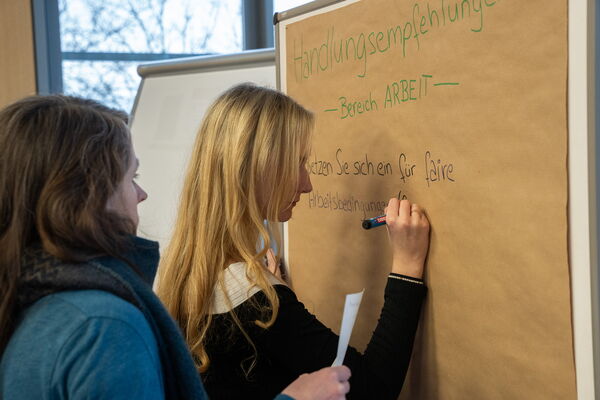 Handlungsempfehlunge
— Bereich ARBEIT —
Setzen Sie sich ein für faire
Arbeitsbedingungen